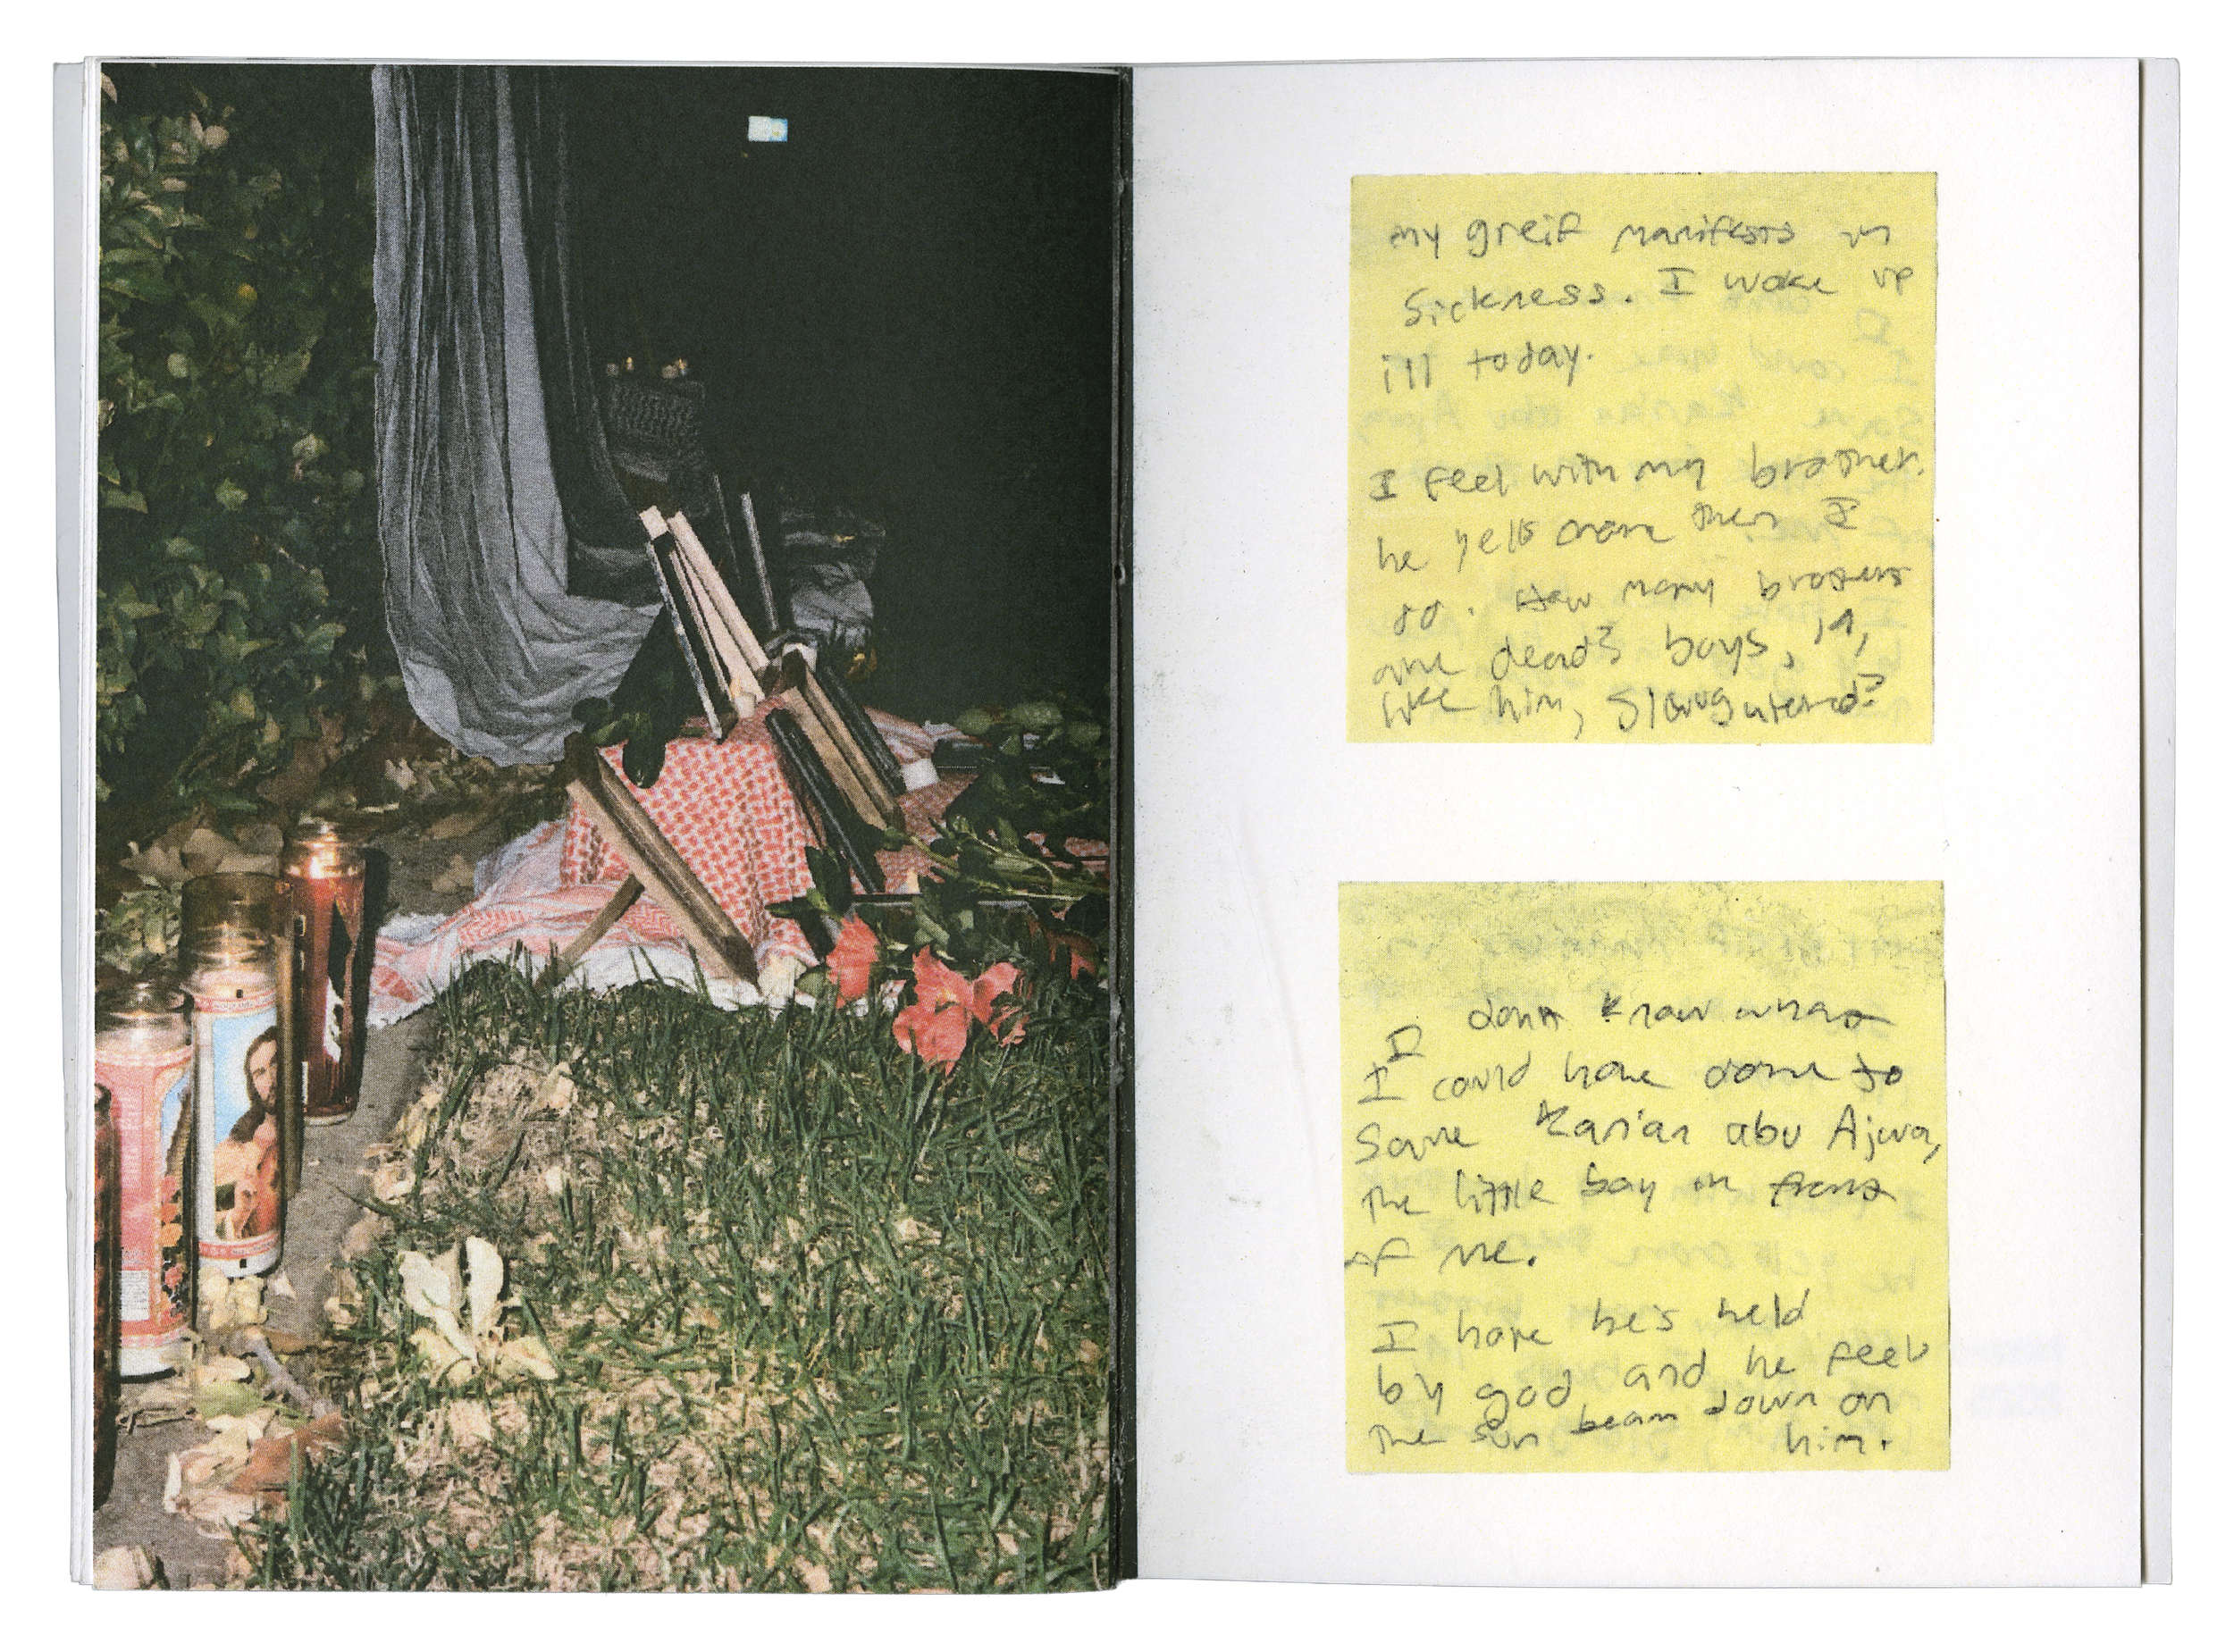 my greif manifests in
sickness. I woke up
ill today.
I feel with my brother.
he yells more then I
do. How many brothers
are dead? boys, 19,
like him, slaughtered?
I dont know what
I could have done to
Save Karian abu Ajwa,
the little boy in front
of me.
I hope he's held
by god and he feels
the sun beam down on
him.